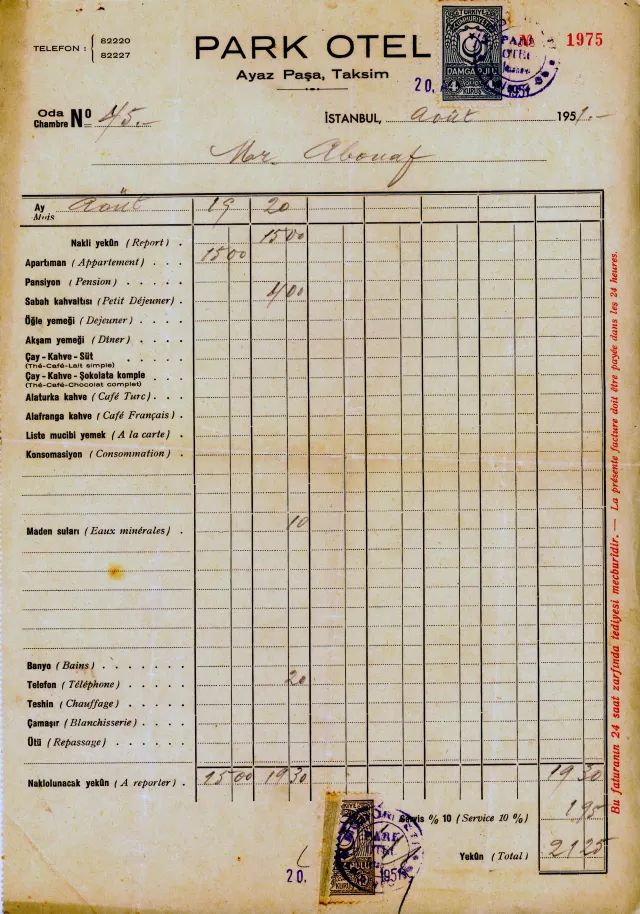 TELEFON : 82220
82227
PARK OTEL
Ayaz Paşa, Taksim
1975
TÜRKİYE
CUMHURİYETİ
DAMGA PULU
4 KURUŞ 4
PARK
OTEL
20. 1951
Oda
Chambre No 45.-
İSTANBUL, Août 1951.-
Mr. Abouaf
Ay Août 19 20
Mois
Nakli yekûn (Report) . 1500
Apartıman (Appartement) . . . 1500
Pansiyon (Pension) . . . . .
Sabah kahvaltısı (Petit Déjeuner) . 400
Öğle yemeği (Dejeuner) . . . .
Akşam yemeği (Dîner) . . . .
Çay - Kahve - Süt . . . . .
(Thé-Café-Lait simple)
Çay - Kahve - Şokolata komple . . .
(Thé-Café-Chocolat complet)
Alaturka kahve (Café Turc) . . .
Alafranga kahve (Café Français) .
Liste mucibi yemek (A la carte) .
Konsomasiyon (Consommation) .
Maden suları (Eaux minérales) . 10
Banyo (Bains) . . . . . . .
Telefon (Téléphone) . . . . . 20
Teshin (Chauffage) . . . . .
Çamaşır (Blanchisserie) . . . .
Ütü (Repassage) . . . . . .
Naklolunacak yekûn (A reporter) . 1500 1930 1930
Servis % 10 (Service 10 %) 195
Yekûn (Total) 2125
20. 1951
PARK
Bu faturanın 24 saat zarfında tediyesi mecburîdir. — La présente facture doit être payée dans les 24 heures.